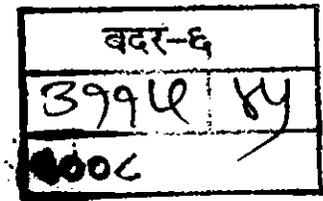 बदर-६
३११५ ४५
२००८